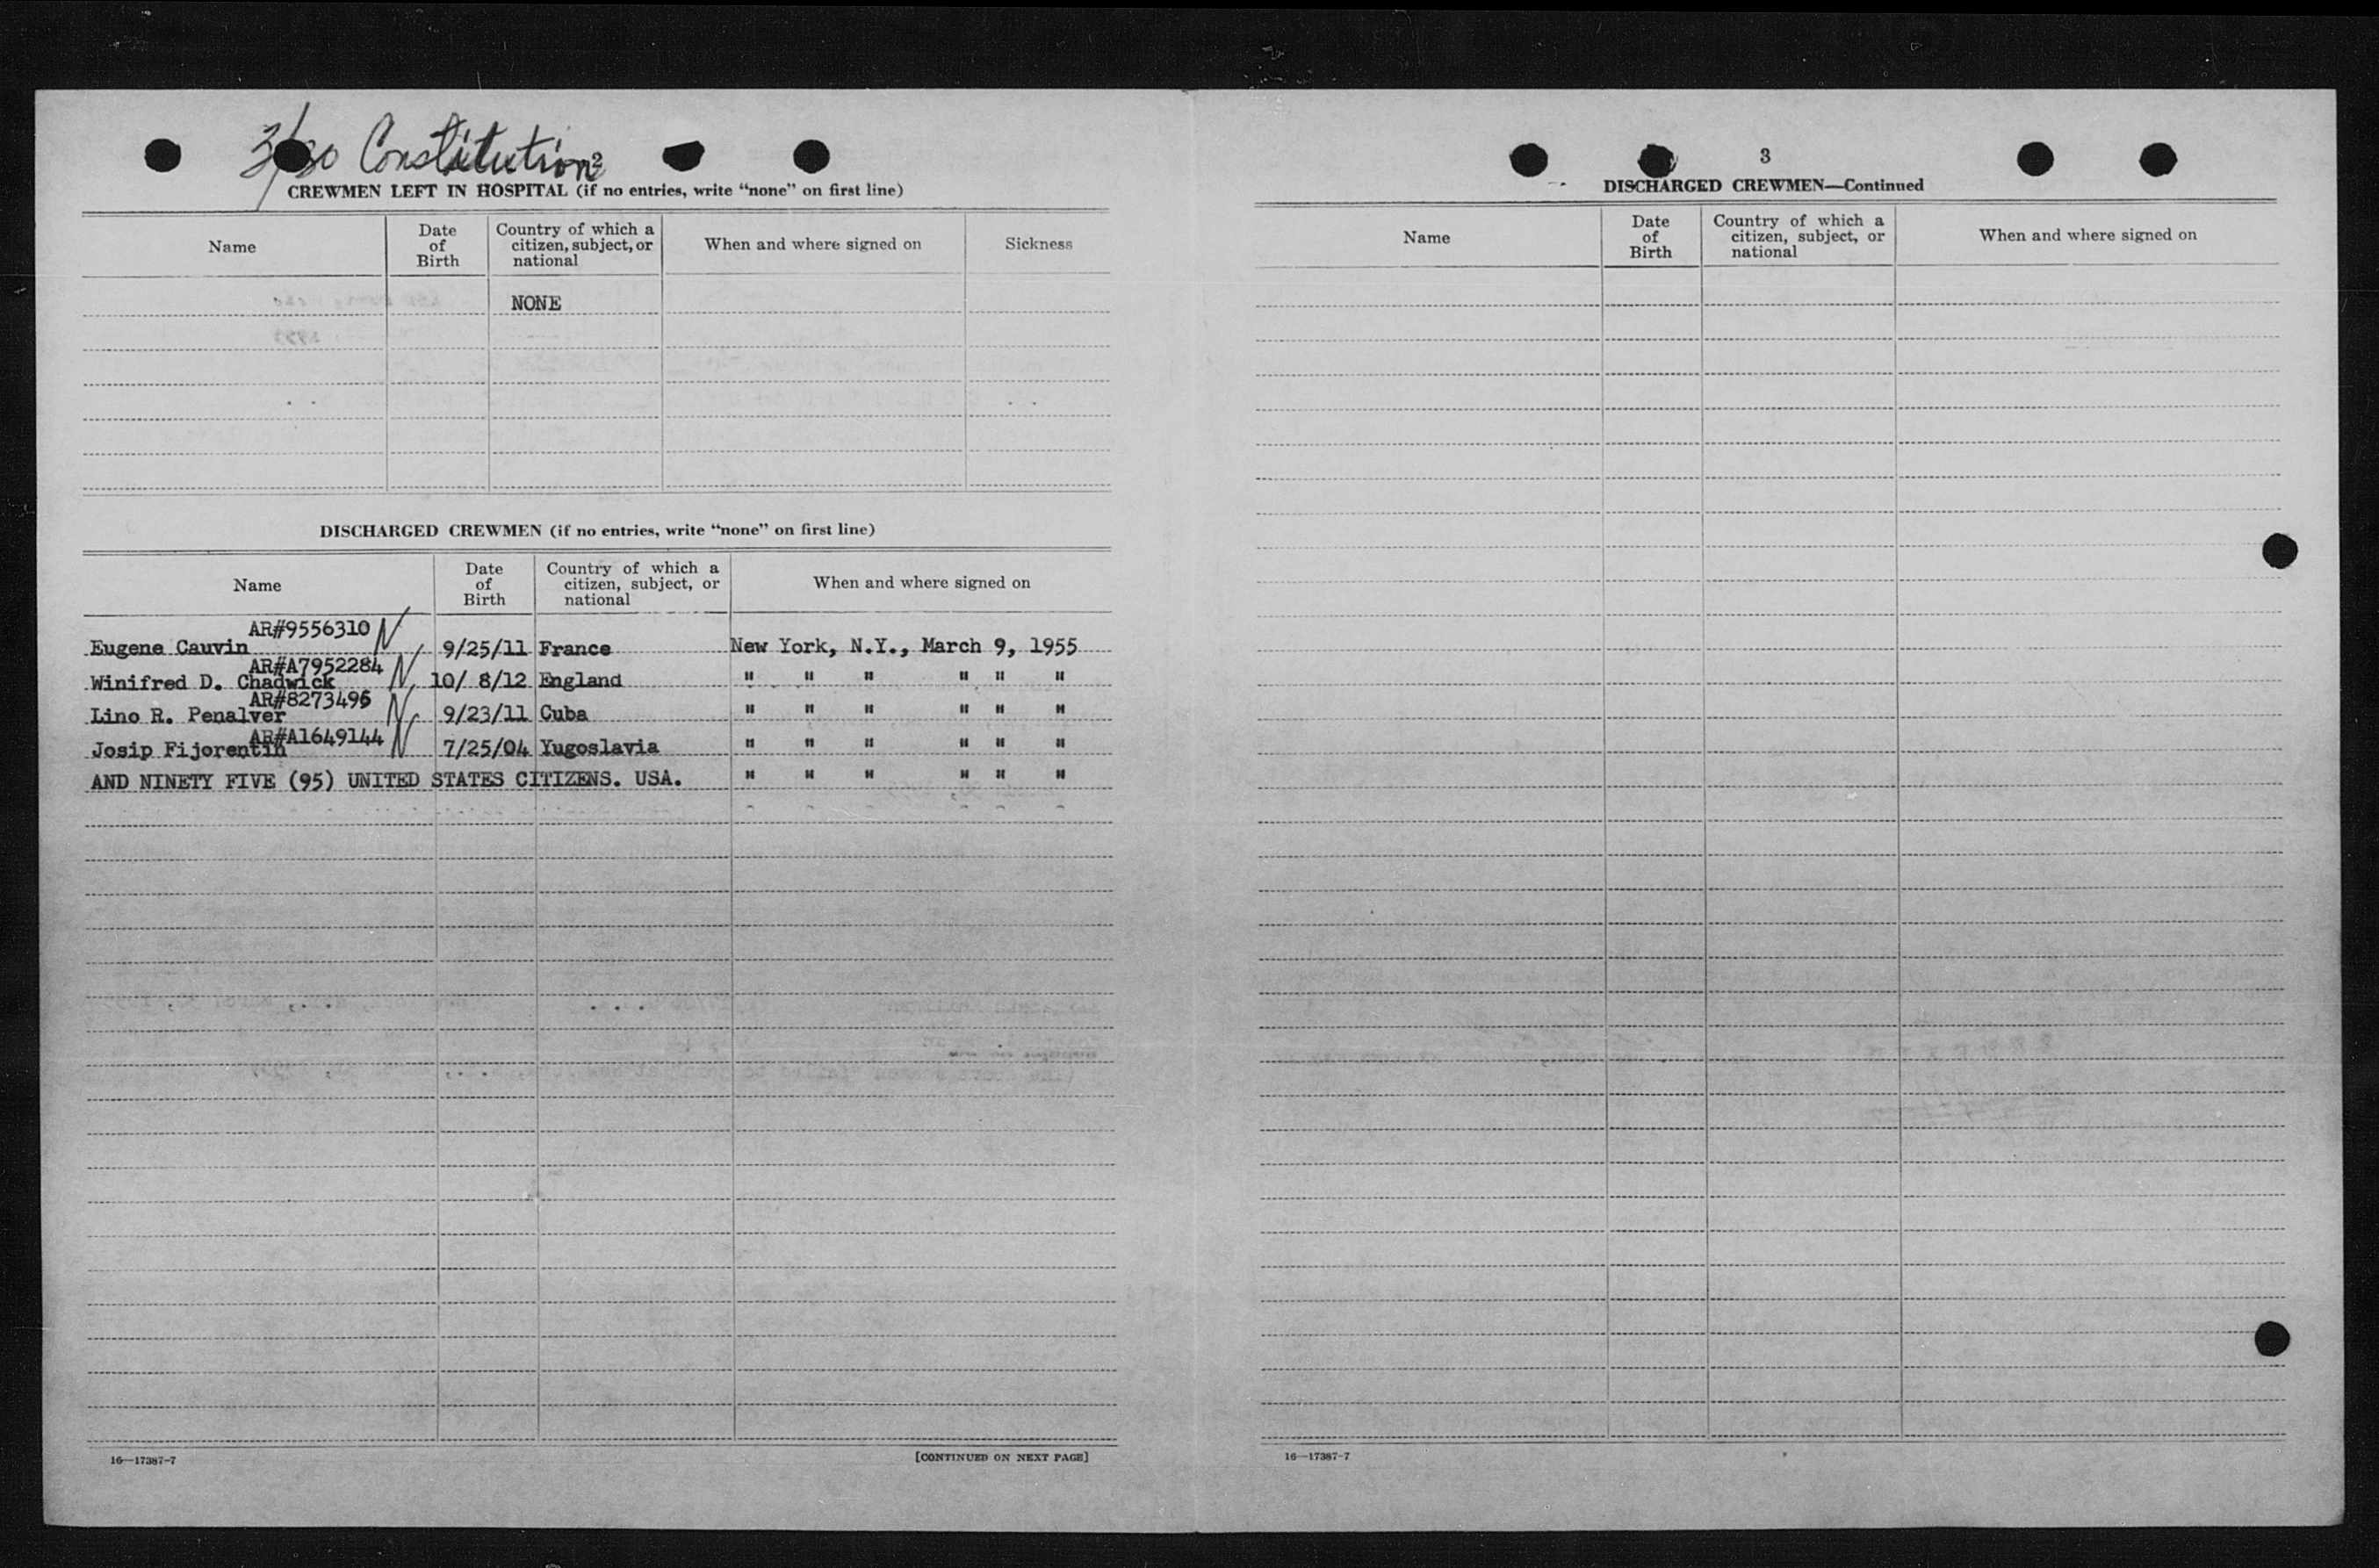 3/30 Constitution
2
CREWMEN LEFT IN HOSPITAL (if no entries, write “none” on first line)
Name Date of Birth Country of which a citizen, subject, or national When and where signed on Sickness
NONE
DISCHARGED CREWMEN (if no entries, write “none” on first line)
Name Date of Birth Country of which a citizen, subject, or national When and where signed on
AR#9556310 N
Eugene Cauvin 9/25/11 France New York, N.Y., March 9, 1955
AR#A7952284 N
Winifred D. Chadwick 10/ 8/12 England " " " " " "
AR#8273495 N
Lino R. Penalver 9/23/11 Cuba " " " " " "
AR#A1649144 N
Josip Fijorentin 7/25/04 Yugoslavia " " " " " "
AND NINETY FIVE (95) UNITED STATES CITIZENS. USA. " " " " " "
16—17387-7 [CONTINUED ON NEXT PAGE]
3
DISCHARGED CREWMEN—Continued
Name Date of Birth Country of which a citizen, subject, or national When and where signed on
16—17387-7